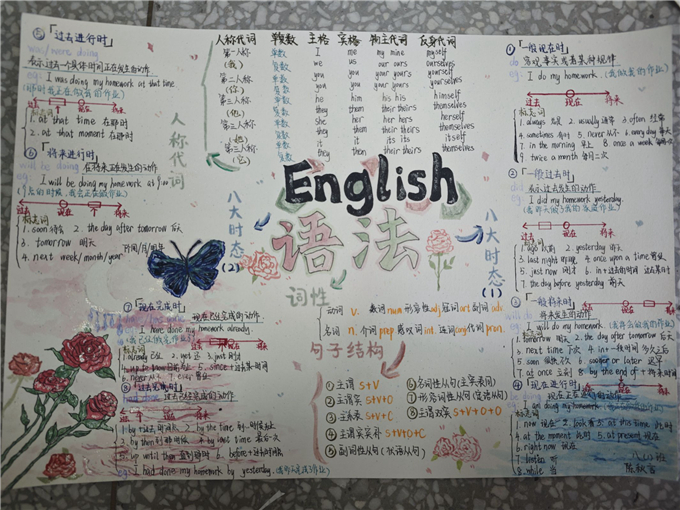 ⑤「过去进行时」
was/were doing
表示过去一个具体时间正在发生的动作
eg: I was doing my homework at that time
过去 现在 将来
标志词
1. at that time 在那时
2. at that moment 在那时
⑥「将来进行时」
will be doing 在将来正在发生的动作
eg: I will be doing my homework at
过去 现在 将来
标志词
1. soon 2. the day after tomorrow 后天
3. tomorrow 明天
4. next week/month/year
人称代词
人称代词 单复数 主格 宾格 物主代词 反身代词
第一人称 单数 I me my mine myself
(我) 复数 we us our ours ourselves
第二人称 单数 you you your yours yourself
(你) 复数 you you your yours yourselves
第三人称 单数 he him his his himself
(他) 复数 they them their theirs themselves
第三人称 单数 she her her hers herself
(她) 复数 they them their theirs themselves
第三人称 单数 it it its its itself
(它) 复数 they them their theirs themselves
English
语法
八大时态
(2)
八大时态
(1)
①「一般现在时」
do
eg: I do my homework.
过去 现在 将来
标志词
1. always 总是 2. usually 通常 3. often 经常
4. sometimes 有时 5. never 从不 6. every day 每天
7. in the morning 早上 8. once a week 每周一次
9. twice a month 每月二次
②「一般过去时」
did 表示过去发生的动作
eg: I did my homework yesterday.
现在 将来
标志词
1. ago 以前 2. yesterday 昨天
3. last night 昨晚 4. once upon a time
5. just now 刚才 6. in+过去的时间
7. the day before yesterday 前天
③「一般将来时」
将来发生的动作
I will do my homework.
1. tomorrow 明天 2. the day after tomorrow 后天
3. next time 下次 4. in+一段时间
5. soon 6. sooner or later
7. at once 立刻 8. by the end of+将来时间
④「现在进行时」
am doing my homework
标志词
1. now 现在 2. look 看 3. at this time 此时
4. at the moment 此时 5. at present 现在
6. right now 现在
7. listen 听
8. while 当
词性
动词 v. 数词 num 形容词 adj 冠词 art 副词 adv.
名词 n. 介词 prep 感叹词 int. 连词 conj 代词 pron.
句子结构
① 主谓 S+V
② 主谓宾 S+V+O
③ 主系表 S+V+C
④ 主谓宾宾补 S+V+O+C
⑤ 副词性从句(状语从句)
⑥ 名词性从句(主宾表同)
⑦ 形容词性从句(定语从句)
⑧ 主谓双宾 S+V+O+O
⑦「现在完成时」
现在已经完成的动作
I have done my homework already.
标志词
1. already 已经 2. yet 还 3. just 刚刚
4. up to now 5. since+过去某时间
6. never 从不 7. ever 曾经
⑧「过去完成时」
1. by+过去的时间 2. by the time
3. by then 到那时候 4. by last time
5. up until then 直到那时 6. before+过去的时间
eg: I had done my homework by yesterday.